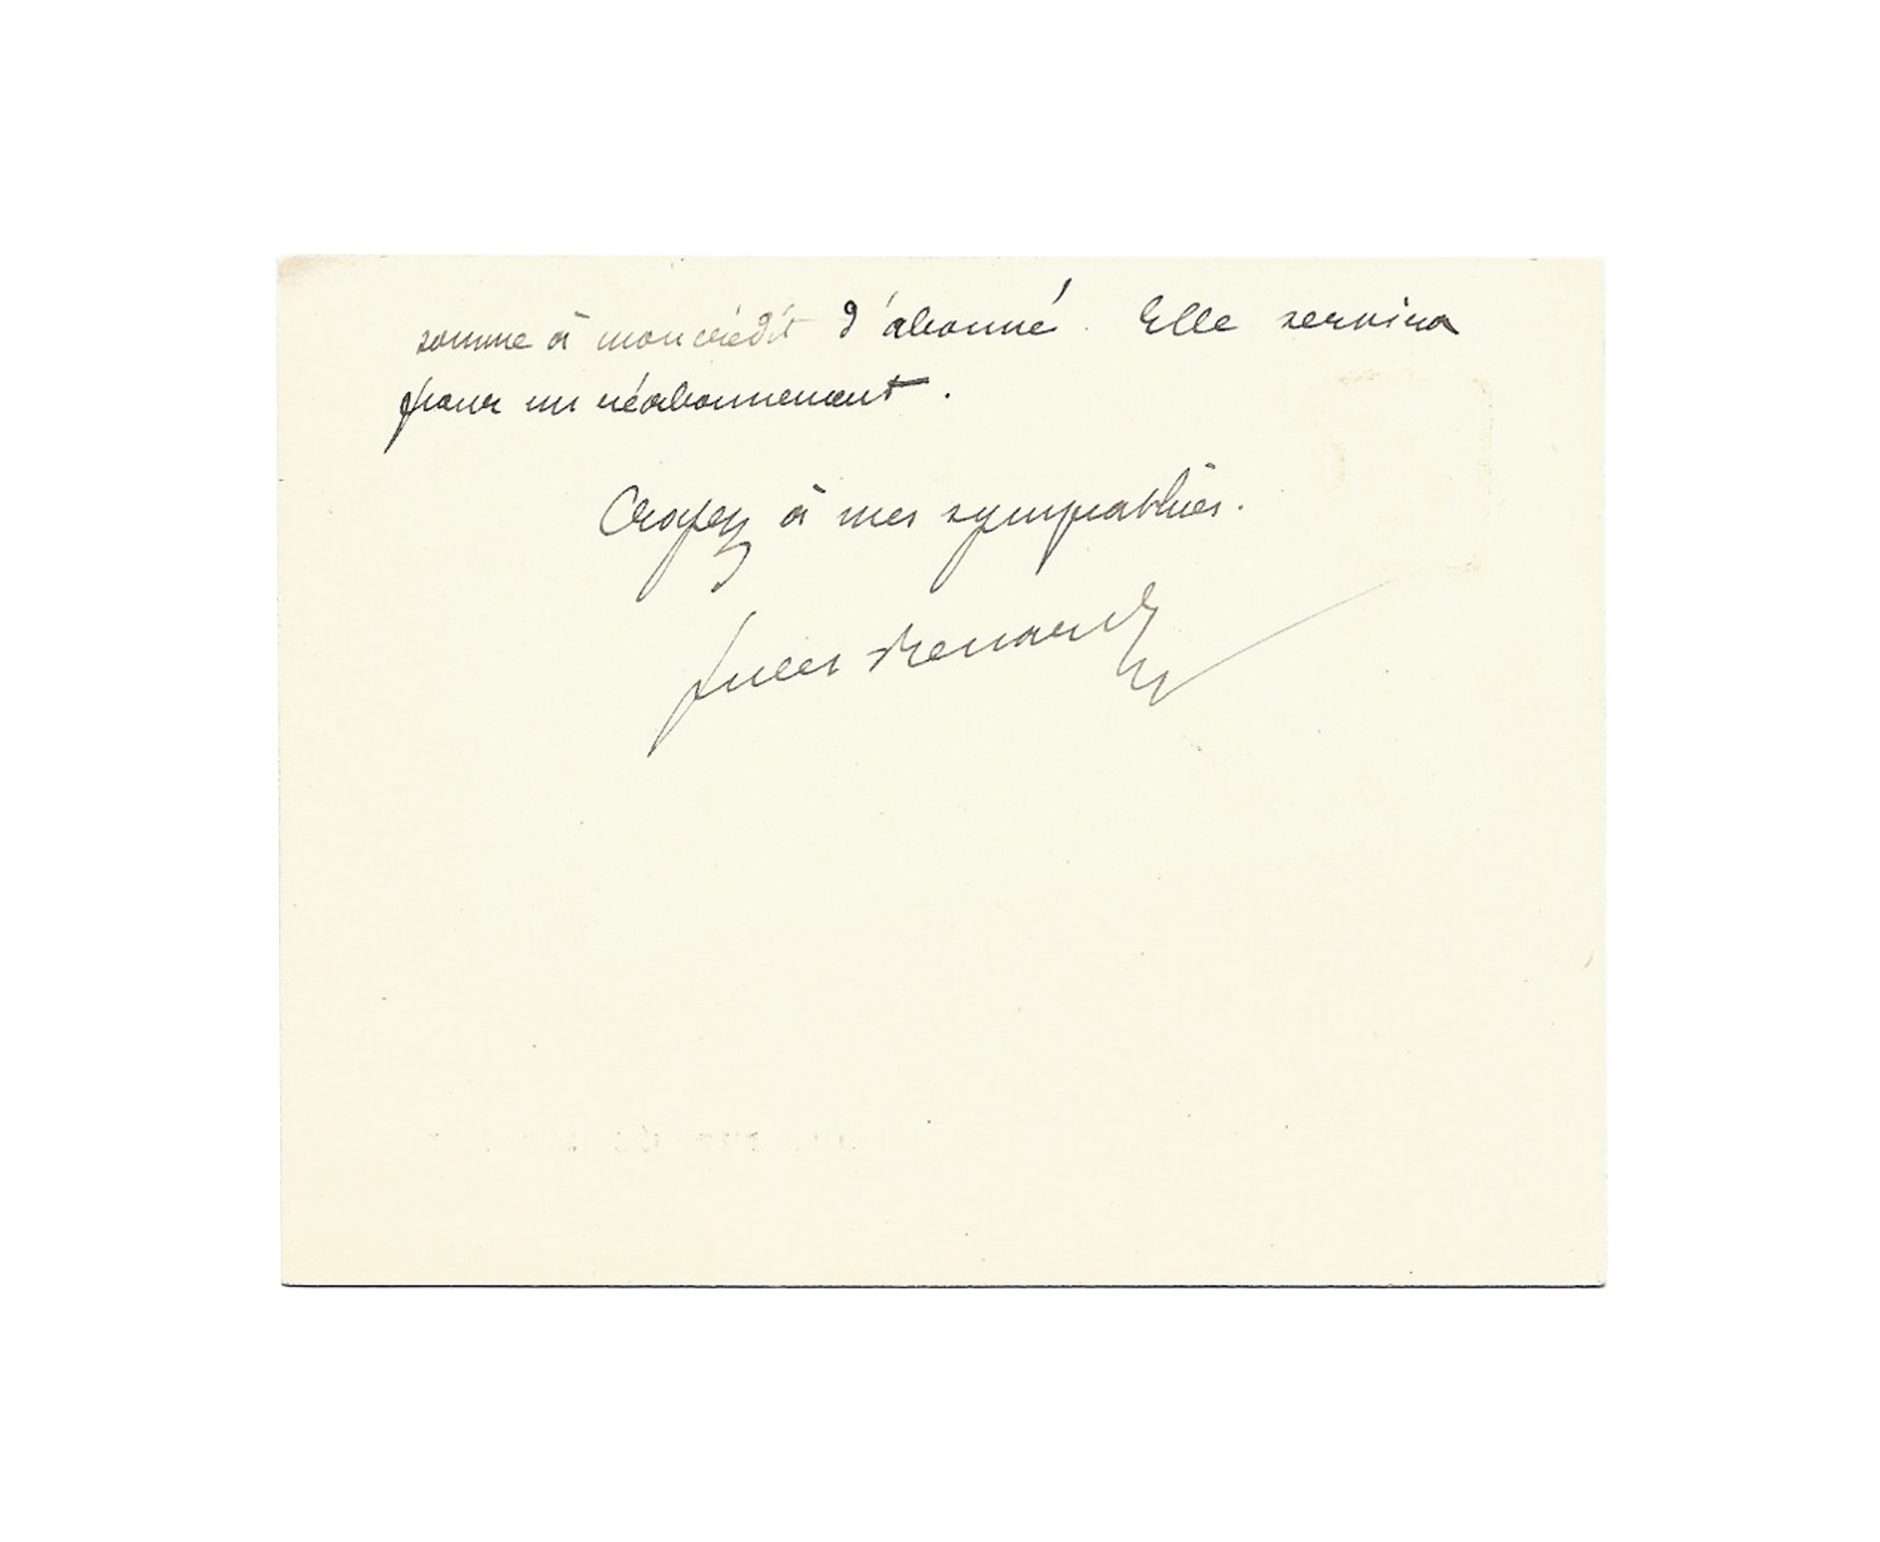 somme à mon crédit d'abonné. Elle servira
pour un réabonnement.
Croyez à mes sympathies.
Jules Renard